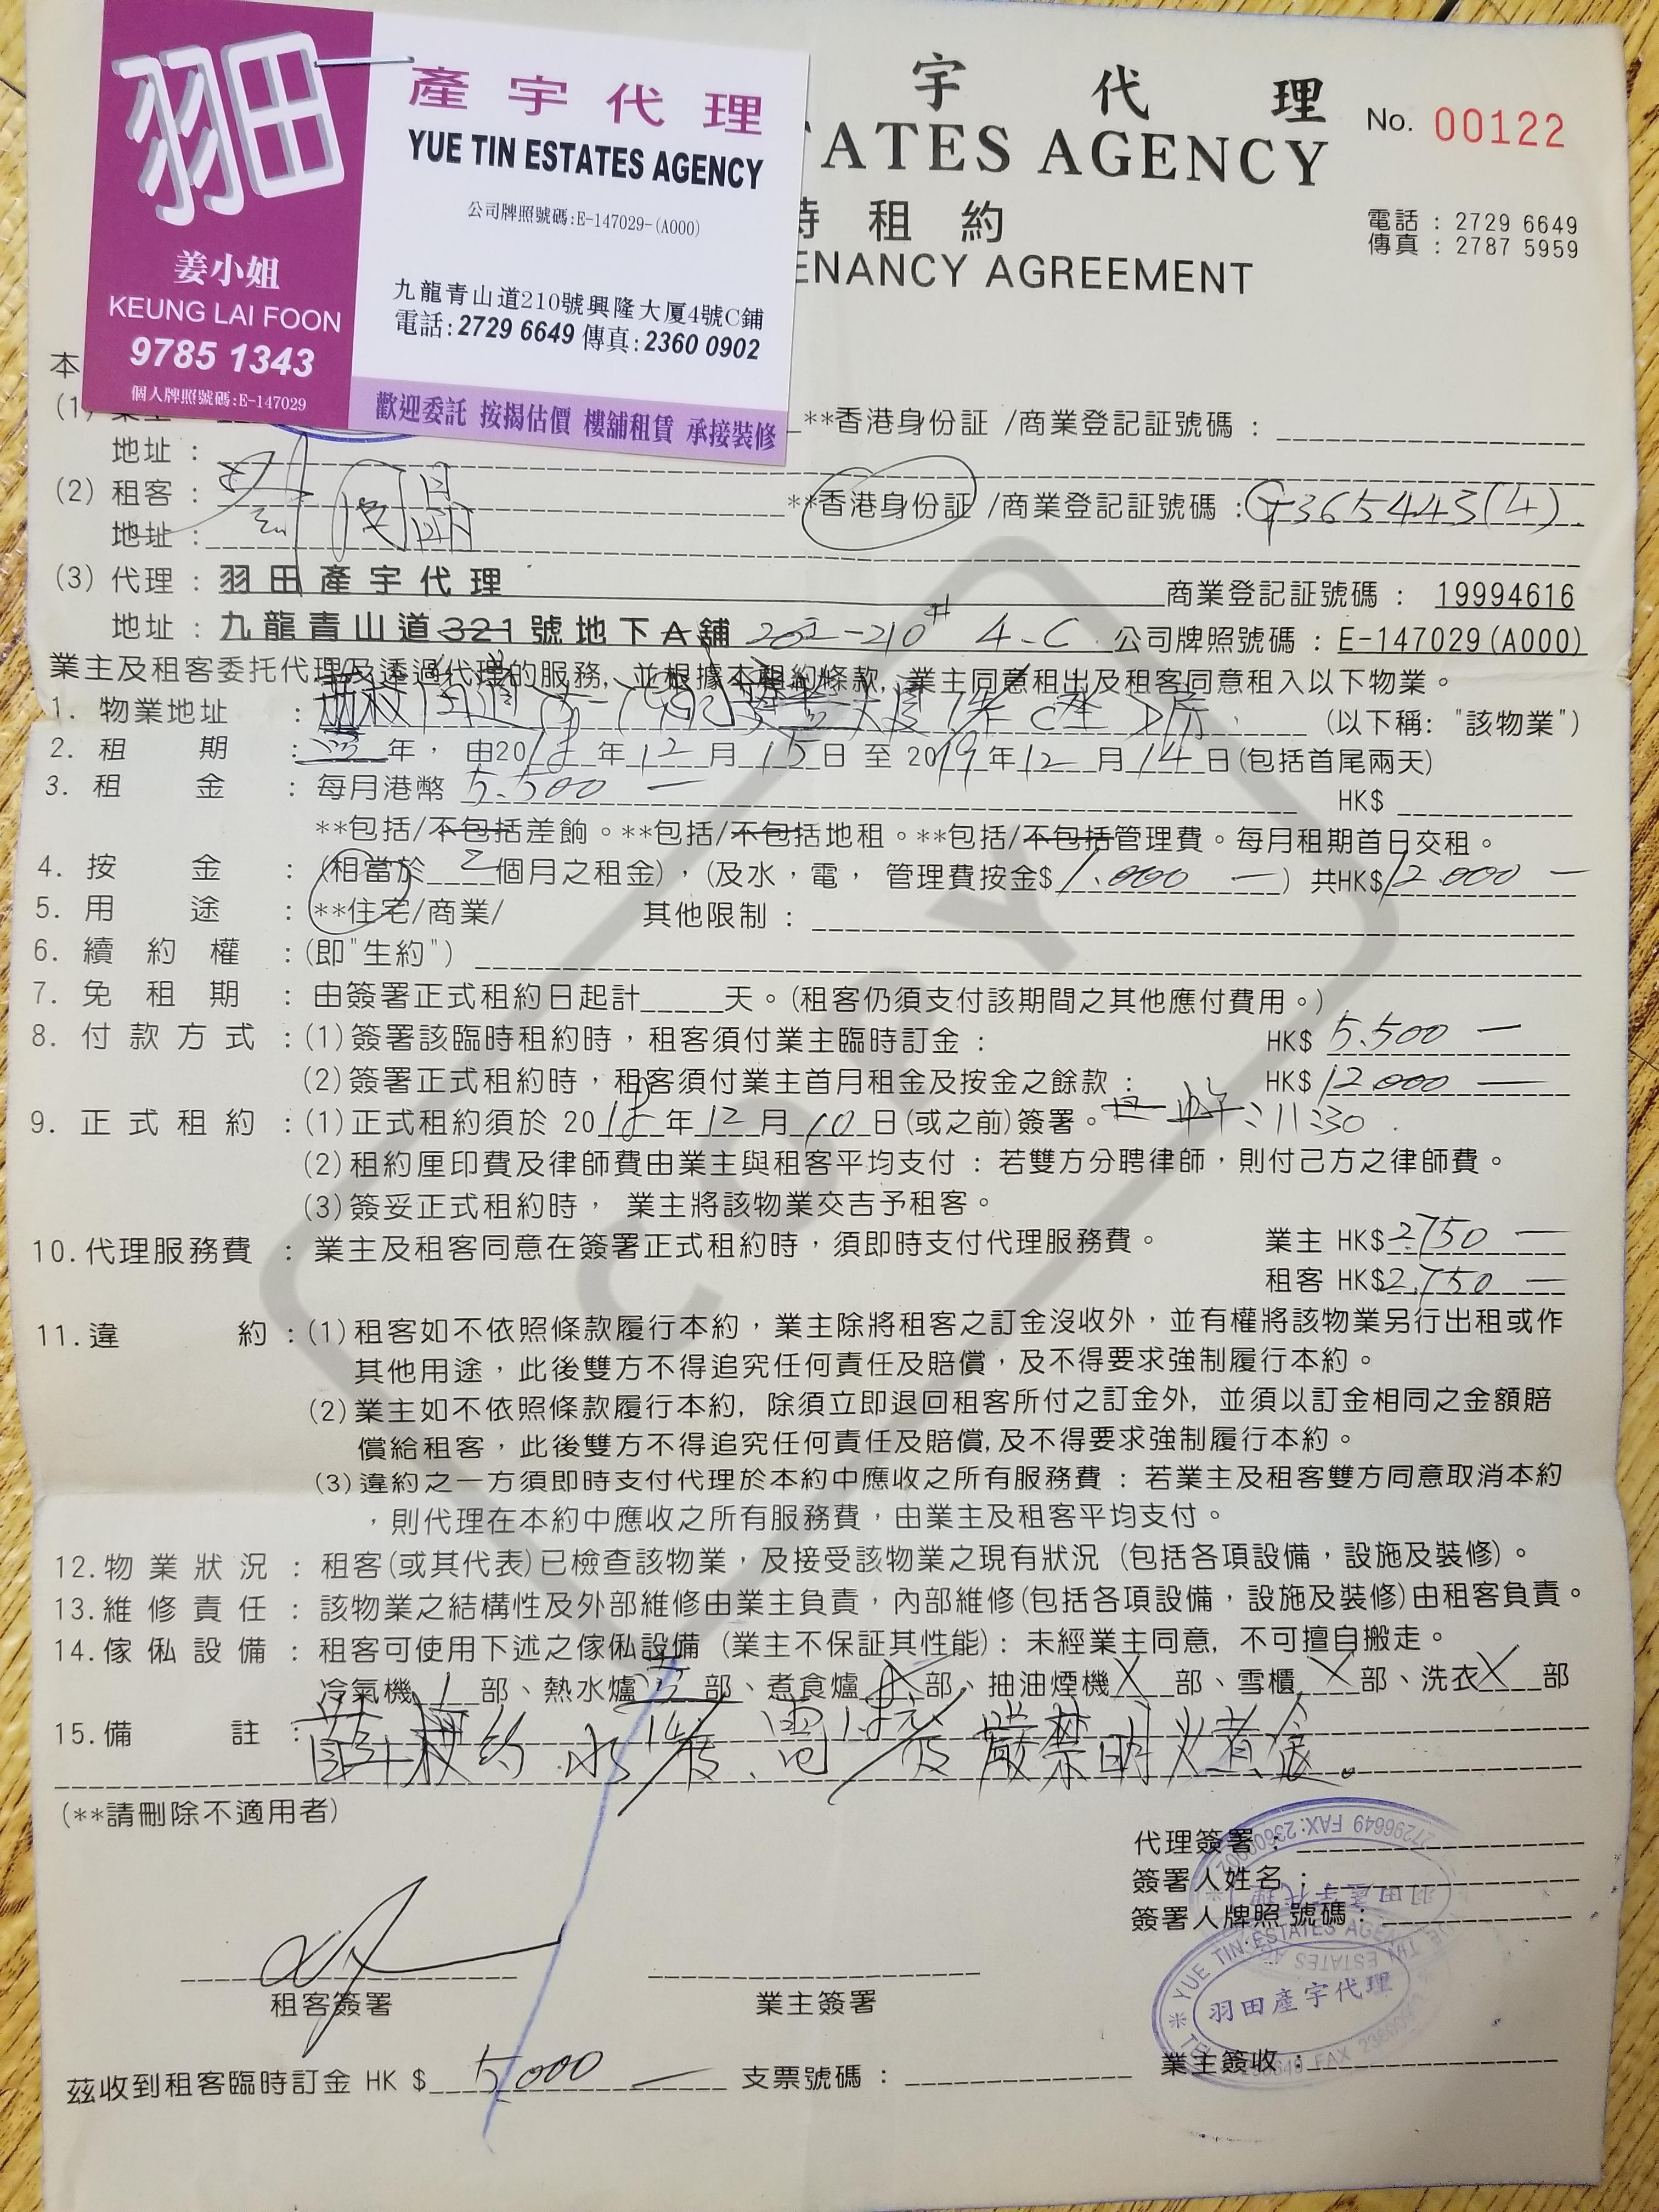 羽田
產宇代理
YUE TIN ESTATES AGENCY
公司牌照號碼:E-147029-(A000)
姜小姐
KEUNG LAI FOON
9785 1343
個人牌照號碼:E-147029
九龍青山道210號興隆大厦4號C鋪
電話:2729 6649 傳真:2360 0902
歡迎委託 按揭估價 樓舖租賃 承接裝修
宇代理
ATES AGENCY
No. 00122
時租約
ENANCY AGREEMENT
電話：2729 6649
傳真：2787 5959
本
(1) 業主 **香港身份証/商業登記証號碼：
地址：
(2) 租客： **香港身份証/商業登記証號碼：G365443(4)
地址：
(3) 代理：羽田產宇代理 商業登記証號碼： 19994616
地址：九龍青山道321號地下A舖 202-210# 4-C 公司牌照號碼：E-147029(A000)
業主及租客委托代理及透過代理的服務, 並根據本租約條款, 業主同意租出及租客同意租入以下物業。
1. 物業地址： (以下稱: "該物業")
2. 租期：壹年，由2018年12月15日至2019年12月14日(包括首尾兩天)
3. 租金：每月港幣 5.500 — HK$
**包括/不包括差餉。**包括/不包括地租。**包括/不包括管理費。每月租期首日交租。
4. 按金：(相當於 2 個月之租金)，(及水，電，管理費按金$1.000 —) 共HK$12.000 —
5. 用途：**住宅/商業/ 其他限制：
6. 續約權：(即"生約")
7. 免租期：由簽署正式租約日起計____天。(租客仍須支付該期間之其他應付費用。)
8. 付款方式：(1)簽署該臨時租約時，租客須付業主臨時訂金： HK$ 5.500 —
(2)簽署正式租約時，租客須付業主首月租金及按金之餘款： HK$ 12000 —
9. 正式租約：(1)正式租約須於 2018年12月10日(或之前)簽署。 11:30
(2)租約厘印費及律師費由業主與租客平均支付：若雙方分聘律師，則付己方之律師費。
(3)簽妥正式租約時， 業主將該物業交吉予租客。
10.代理服務費：業主及租客同意在簽署正式租約時，須即時支付代理服務費。 業主 HK$2.750 —
租客 HK$2,750 —
11.違約：(1)租客如不依照條款履行本約，業主除將租客之訂金沒收外，並有權將該物業另行出租或作
其他用途，此後雙方不得追究任何責任及賠償，及不得要求強制履行本約。
(2)業主如不依照條款履行本約, 除須立即退回租客所付之訂金外, 並須以訂金相同之金額賠
償給租客，此後雙方不得追究任何責任及賠償, 及不得要求強制履行本約。
(3)違約之一方須即時支付代理於本約中應收之所有服務費：若業主及租客雙方同意取消本約
，則代理在本約中應收之所有服務費，由業主及租客平均支付。
12.物業狀況：租客(或其代表)已檢查該物業，及接受該物業之現有狀況 (包括各項設備，設施及裝修)。
13.維修責任：該物業之結構性及外部維修由業主負責，內部維修(包括各項設備，設施及裝修)由租客負責。
14.傢俬設備：租客可使用下述之傢俬設備 (業主不保証其性能)：未經業主同意, 不可擅自搬走。
冷氣機 1 部、熱水爐 壹 部、煮食爐 X 部、抽油煙機 X 部、雪櫃 X 部、洗衣 X 部
15.備註： 約 水 電 嚴禁明火煮食。
(**請刪除不適用者)
代理簽署：
簽署人姓名：
簽署人牌照號碼：
27296649 FAX:23600902
羽田產宇代理
YUE TIN ESTATES AGENCY
羽田產宇代理
租客簽署
業主簽署
茲收到租客臨時訂金 HK $ 5000 — 支票號碼： 業主簽收：
COPY